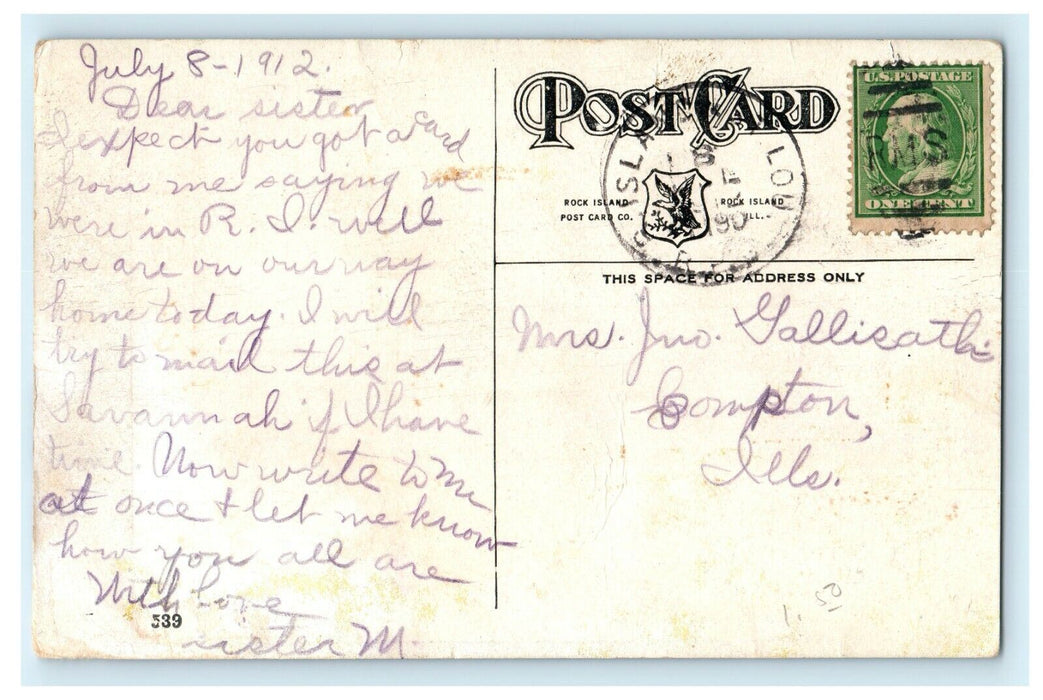 July 8-1912.
Dear sister
I expect you got a card
from me saying we
were in R. I. well
we are on our way
home today. I will
try to mail this at
Savannah if I have
time. Now write to me
at once & let me know
how you all are
With Love
sister M.
539
POST CARD
ROCK ISLAND
POST CARD CO.
ROCK ISLAND
ILL.
U.S. POSTAGE
ONE CENT
RMS
ISLA
LOU
THIS SPACE FOR ADDRESS ONLY
Mrs. Jno. Gallisath
Compton,
Ills.
1.50